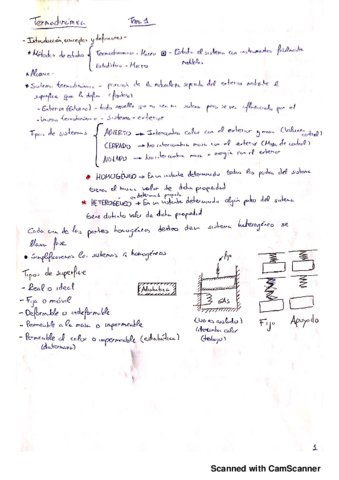 Termodinámica Tema 1
- Introducción, conceptos y definiciones -
* Métodos de estudio { Termodinámica - Macro → Estudia el sistema con instrumentos fácilmente medibles
Estadística - Micro
* Alcance -
* Sistema termodinámico - porción de la naturaleza separada del exterior mediante la
superficie que la define (frontera)
- Exterior (entorno) - todo aquello que no sea mi sistema pero se ve influenciado por él
- Universo termodinámico - sistema + exterior
Tipos de sistemas { ABIERTO → Intercambia calor con el exterior y masa (Volumen control)
CERRADO → No intercambia masa con el exterior (Masa de control)
AISLADO → No intercambia masa o energía con el exterior
* HOMOGÉNEO → En un instante determinado todos los puntos del sistema
tienen el mismo valor de dicha propiedad
determinada propiedad
* HETEROGÉNEO → En un instante determinado algún punto del sistema
tiene distinto valor de dicha propiedad
Cada una de las partes homogéneas dentro de un sistema heterogéneo se
llama fase
* Simplificaremos los sistemas a homogéneos
Tipos de superficie
- Real o ideal
- Fija o móvil
- Deformable o indeformable
- Permeable a la masa o impermeable
- Permeable al calor o impermeable (adiabática)
(diatérmana)
Adiabática
GAS
(No es aislado)
(intercambia calor
(trabajo)
Fijo Apoyado
1
Scanned with CamScanner